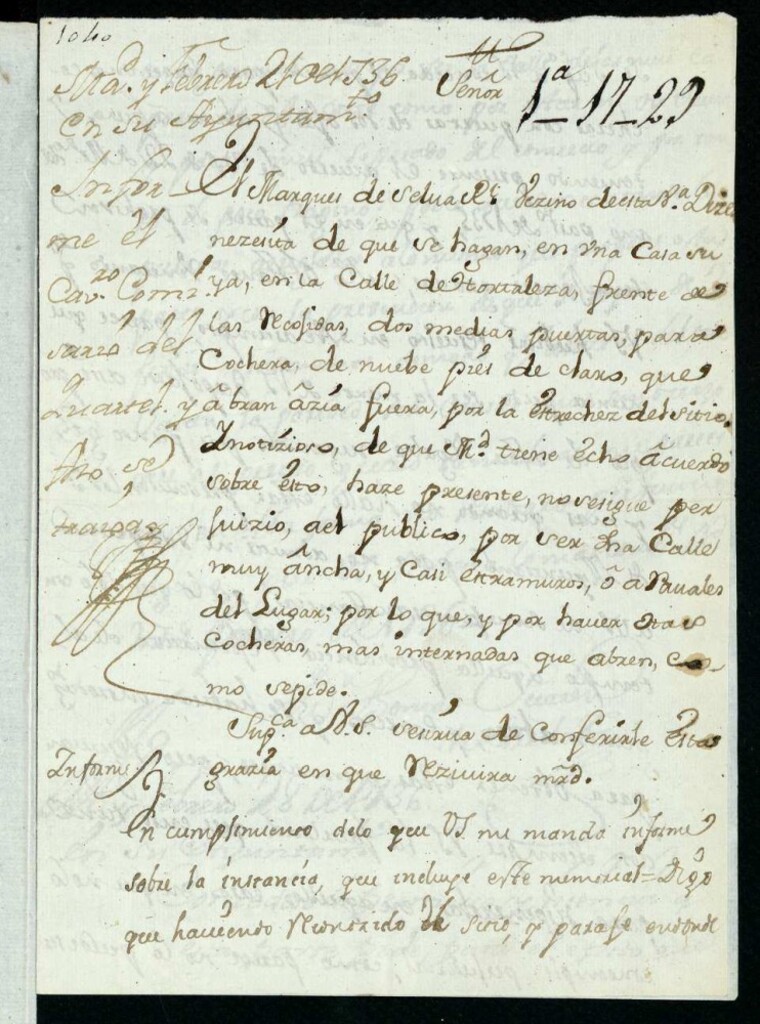 Md. y Febrero 21 de 1736.
en su Ayuntamto
Infor
me el
Cavro Comi
sario del
Quartel. y
fho se
traiga
Señor
1a_17_29
El Marques de Selva Rl. Vezino de esta Va. Dize
nezesita de que se hagan, en vna Casa su
ya, en la Calle de Hortaleza, frente de
las Recojidas, dos medias puertas, para
Cochera, de nuebe pies de claro, que
abran azia fuera, por la estrechez del sitio.
Y notizioso, de que Md. tiene echo acuerdo
sobre esto, haze presente, no se sigue per
juizio, al publico, por ser dha Calle
muy ancha, y Casi extramuros, ô a Rauales
del Lugar; por lo que, y por haver otras
Cocheras, mas internadas que abren, Co
mo se pide.
Supca. a V.S. se sirua de Conferirle esta
grazia en que Rezivira mrd.
Informe
En cumplimiento delo que VS. me manda informe
sobre la instancia, que incluye este memorial = Digo
que haviendo Reconozido el sitio, y paraje en donde